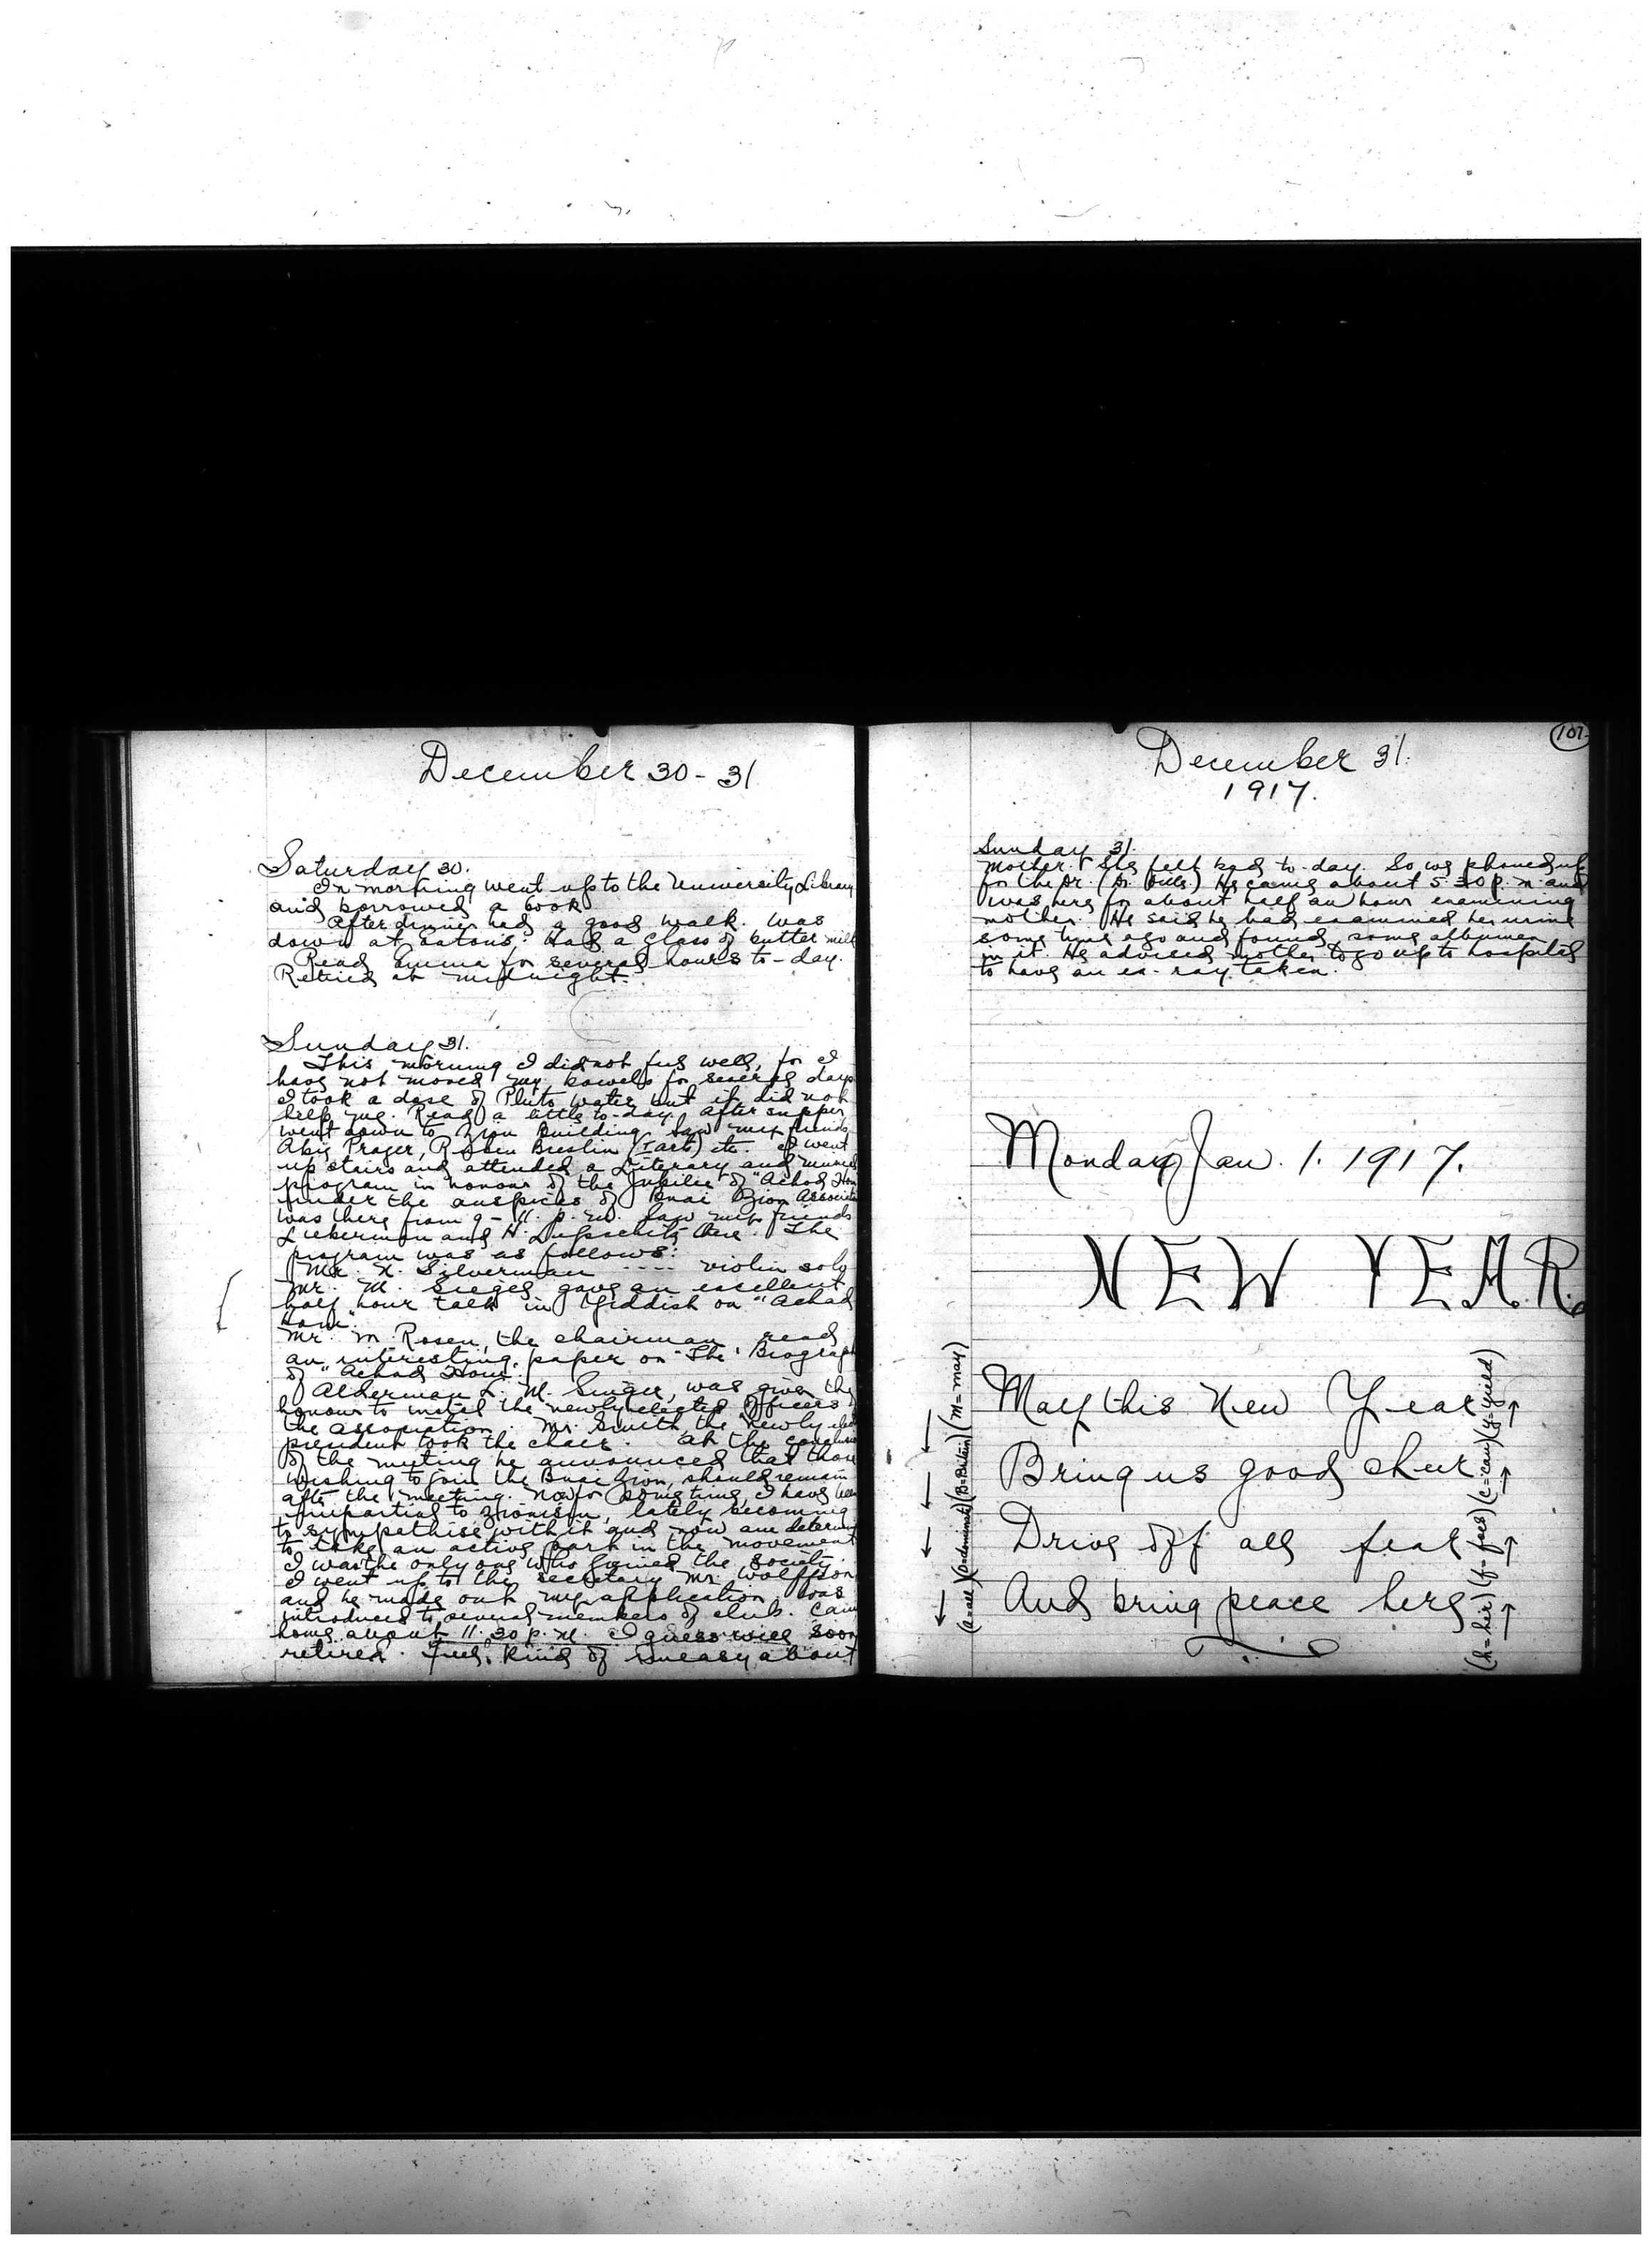 December 30-31
Saturday 30.
In morning went up to the University Library
and borrowed a book
After dinner had a good walk. Was
down at Eatons. Had a glass of butter milk
Read Emma for several hours to-day.
Retired at midnight.
Sunday 31.
This morning I did not feel well, for I
have not moved my bowels for several days
I took a dose of Pluto water but it did not
help me. Read a little to-day. After supper
went down to Zion Building. Saw my friends
Abie Prager, Breslin etc. I went
up stairs and attended a Literary and musical
program in honour of the Jubilee of "Achad Ham
under the auspices of Bnai Zion Associat
was there from 9-11. p.m. Saw my friends
Lieberman and H. Lipschitz there. The
program was as follows:
Mr. N. Silverman ---- violin solo
Mr. M. Siegel gave an excellent
half hour talk in Yiddish on "Achad
Ham".
Mr. M. Rosen, the chairman read
an interesting paper on "The Biograph
of "Achad Ham".
Alderman L. M. Singer, was given the
honour to install the newly elected officers of
the association. Mr. Smith the newly elec
president took the chair. At the conclusion
of the meeting he announced that those
wishing to join the Bnai Zion, should remain
after the meeting. Now for some time, I have been
impartial to zionism, lately becoming
to sympathise with it and now am determin
to take an active part in the movement
I was the only one who joined the society.
I went up to the secretary Mr. Wolffson
and he made out my application. Was
introduced to several members of club. Came
home about 11.30 p.m. I guess will soon
retired. Feel kind of uneasy about
107
December 31.
1917.
Sunday 31.
mother. She felt bad to-day. So we phoned up
for the Dr. He came about 5.30 p.m and
was here for about half an hour examining
mother. He said he had examined her urine
some time ago and found some albumen
in it. He advised mother to go up to hospital
to have an ex-ray taken.
Monday Jan. 1. 1917.
NEW YEAR.
May this New Year
Bring us good cheer
Drive off all fear
And bring peace here
(a=all) (B=Britain) (M=may)
(h=her) (f=foes) (c=can) (y=yield)